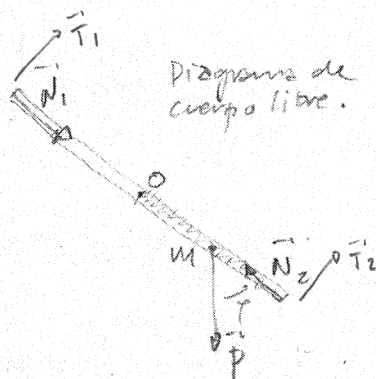 T₁
N₁
Diagrama de
cuerpo libre.
O
M
N₂
T₂
φ
P